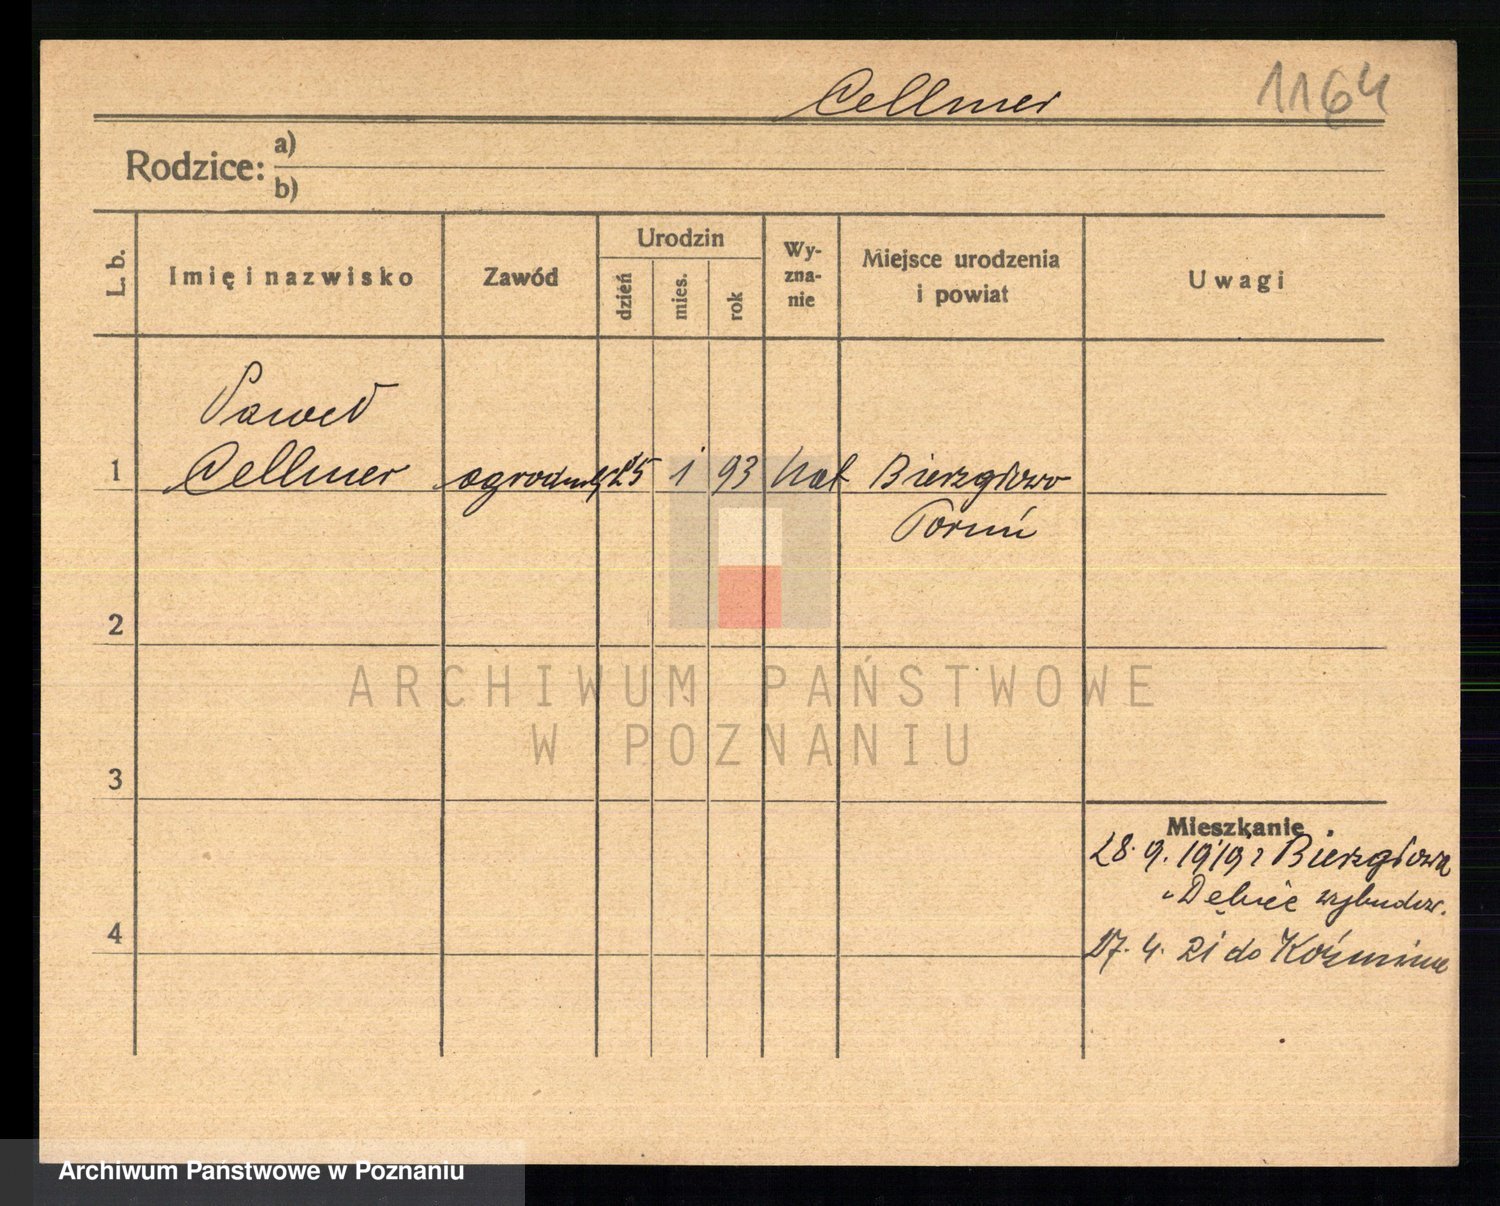 Cellmer 1164
Rodzice: a)
b)
L. b. Imię i nazwisko Zawód Urodzin dzień mies. rok Wy-zna-nie Miejsce urodzenia i powiat Uwagi
Paweł
1 Cellmer ogrodnik 25 1 93 kat Bierzgłowo
Toruń
2
ARCHIWUM PAŃSTWOWE
W POZNANIU
3
Mieszkanie
28. 9. 1919 z Bierzgłowa
Dębiec wybudow.
4
27. 4. 21 do Koźmina
Archiwum Państwowe w Poznaniu